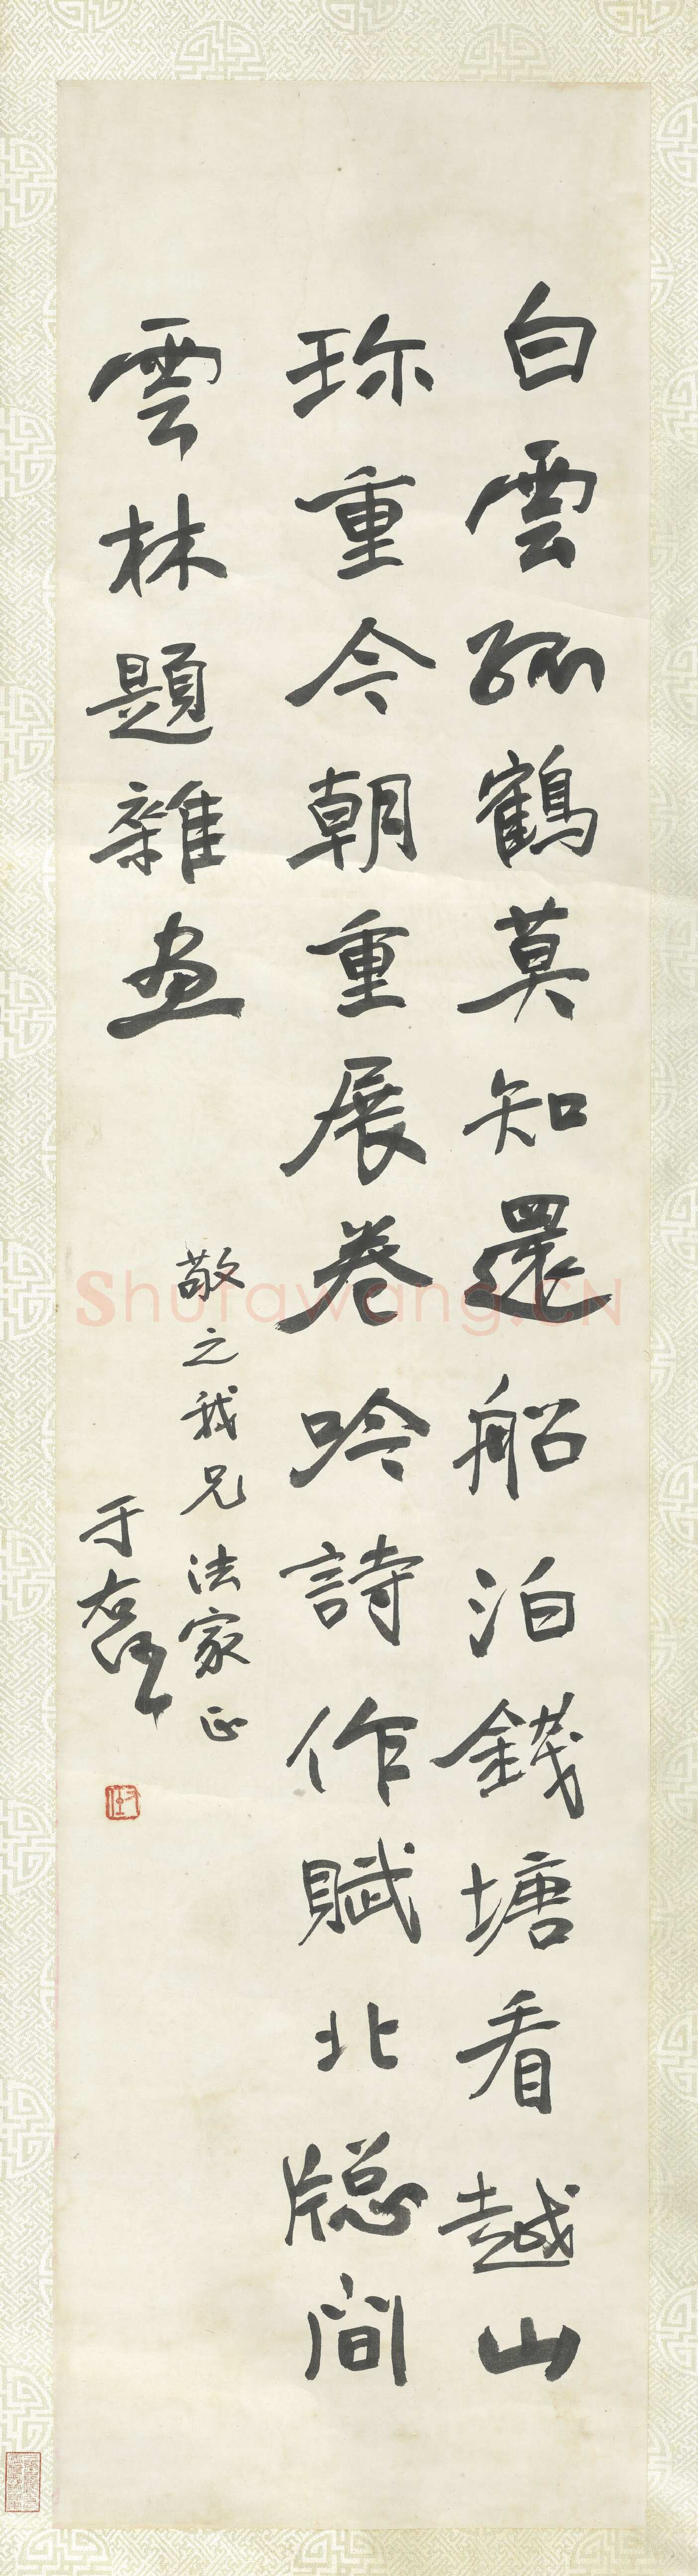 白雲孤鶴莫知還船泊錢塘看越山
珎重今朝重展卷吟詩作賦北牕間
雲林題雜画
敬之我兄法家正
于右任
Shufawang.CN